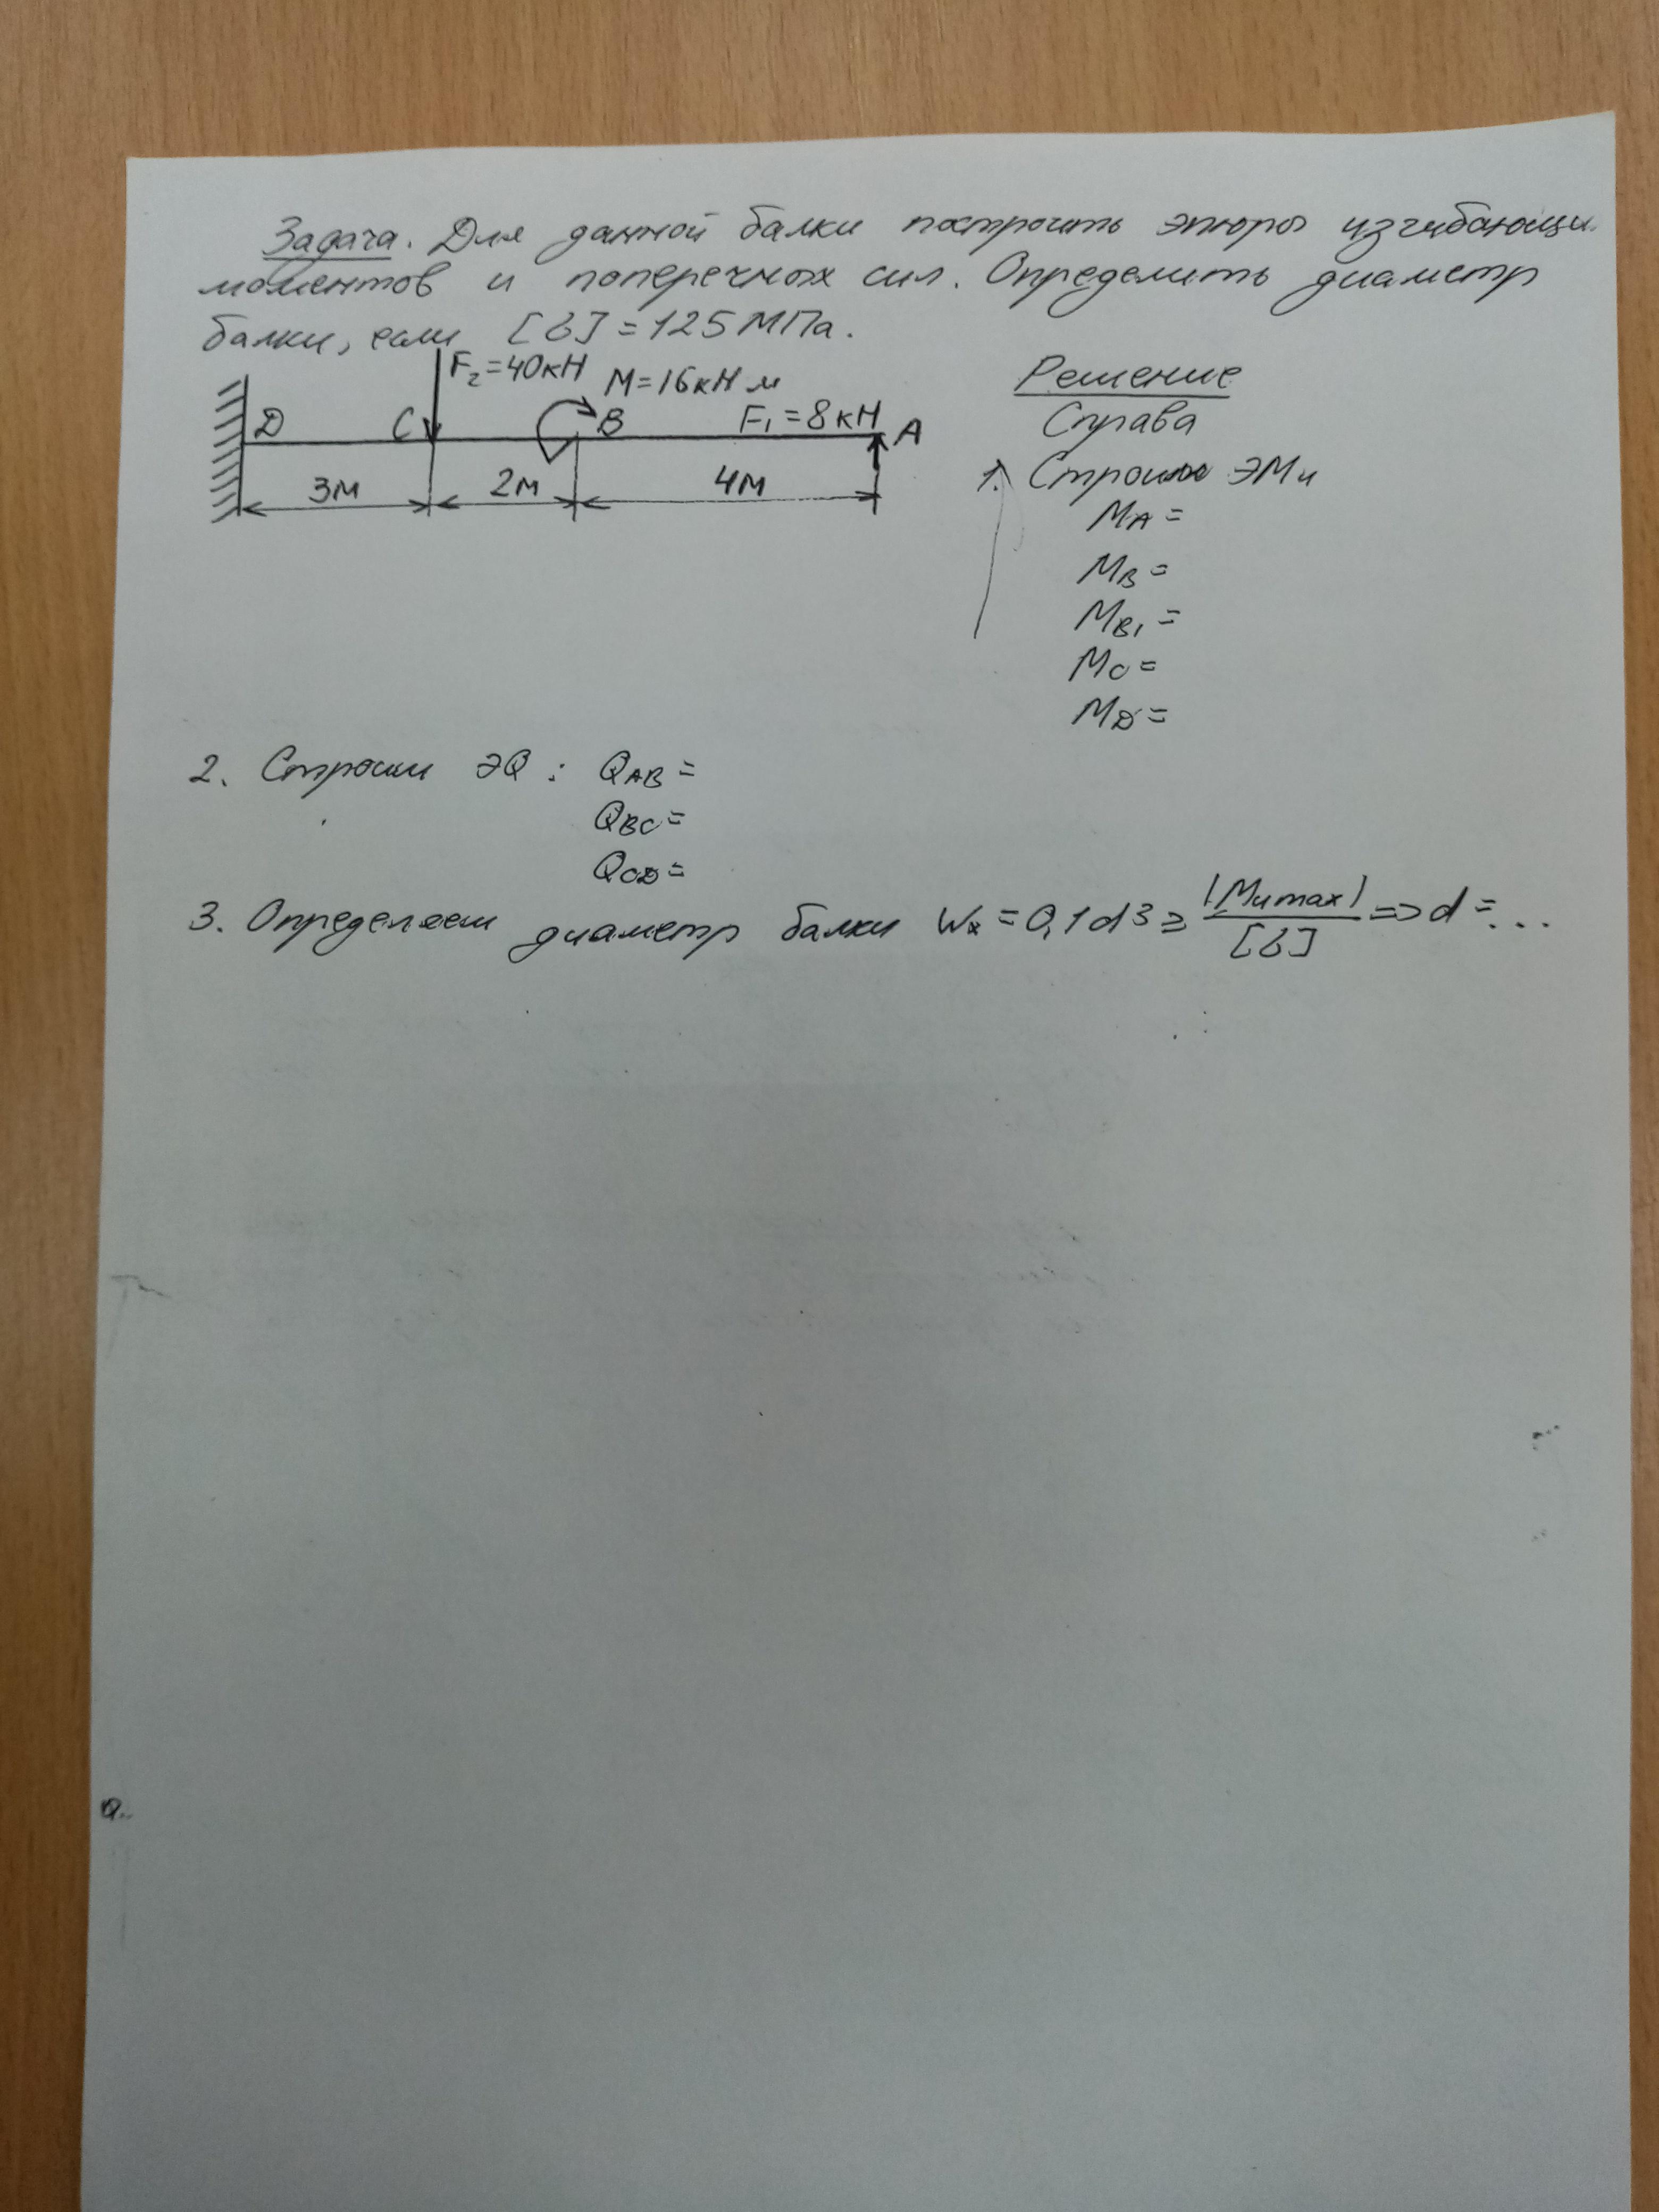 Задача. Для данной балки построить эпюры изгибающи
моментов и поперечных сил. Определить диаметр
балки, если [σ] = 125 МПа.
F₂=40кН
M=16кН м
D
C
B
F₁=8кН
A
3м
2м
4м
Решение
Справа
1. Строим ЭМи
MA =
MB =
MB₁ =
MC =
MD =
2. Строим ЭQ : QAB =
QBC =
QCD =
3. Определяем диаметр балки Wx = 0,1d³ ≥ |Mиmax| / [σ] => d = ...